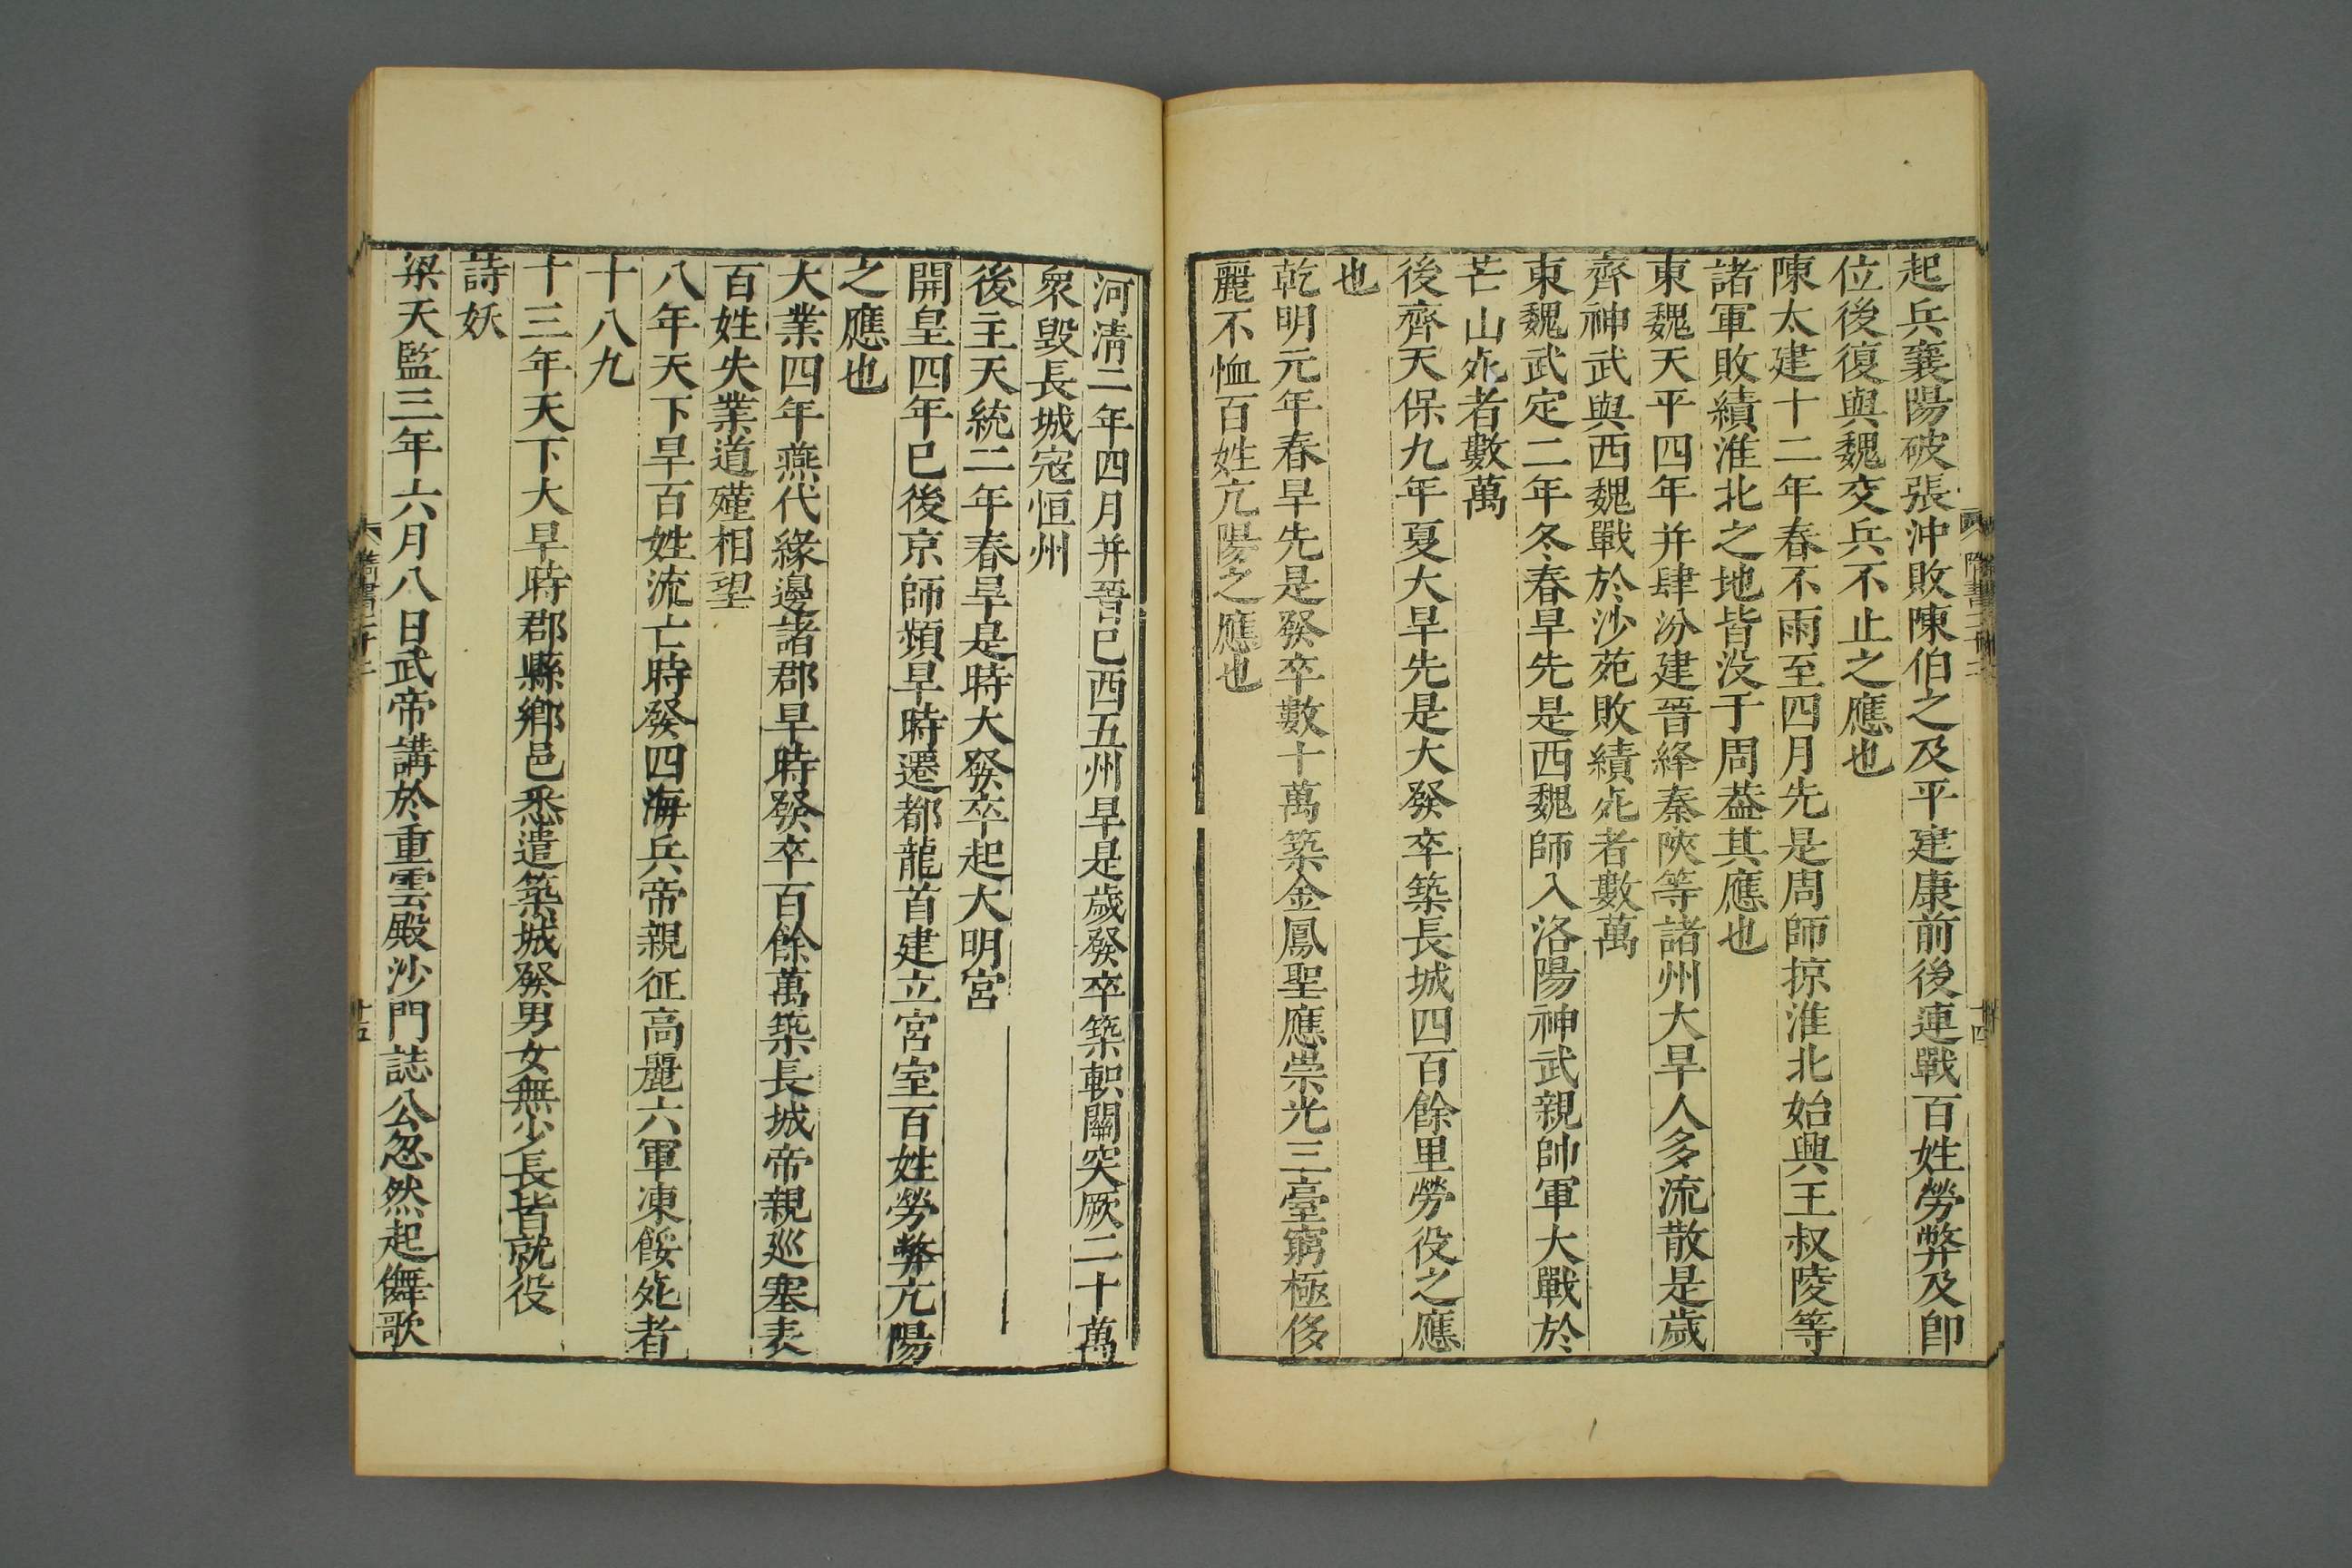 起兵襄陽破張沖敗陳伯之及平建康前後連戰百姓勞弊及卽
位後復與魏交兵不止之應也
陳太建十二年春不雨至四月先是周師掠淮北始興王叔陵等
諸軍敗績淮北之地皆没于周葢其應也
東魏天平四年并肆汾建晉絳秦陝等諸州大旱人多流散是歲
齊神武與西魏戰於沙苑敗績死者數萬
東魏武定二年冬春旱先是西魏師入洛陽神武親帥軍大戰於
芒山死者數萬
後齊天保九年夏大旱先是大發卒築長城四百餘里勞役之應
也
乾明元年春旱先是發卒數十萬築金鳳聖應崇光三臺窮極侈
麗不恤百姓亢陽之應也
河清二年四月并晉已西五州旱是歲發卒築軹關突厥二十萬
衆毀長城寇恒州
後主天統二年春旱是時大發卒起大明宮
開皇四年已後京師頻旱時遷都龍首建立宮室百姓勞弊亢陽
之應也
大業四年燕代緣邊諸郡旱時發卒百餘萬築長城帝親巡塞表
百姓失業道殣相望
八年天下旱百姓流亡時發四海兵帝親征高麗六軍凍餒死者
十八九
十三年天下大旱時郡縣鄕邑悉遣築城發男女無少長皆就役
詩妖
梁天監三年六月八日武帝講於重雲殿沙門誌公忽然起儛歌